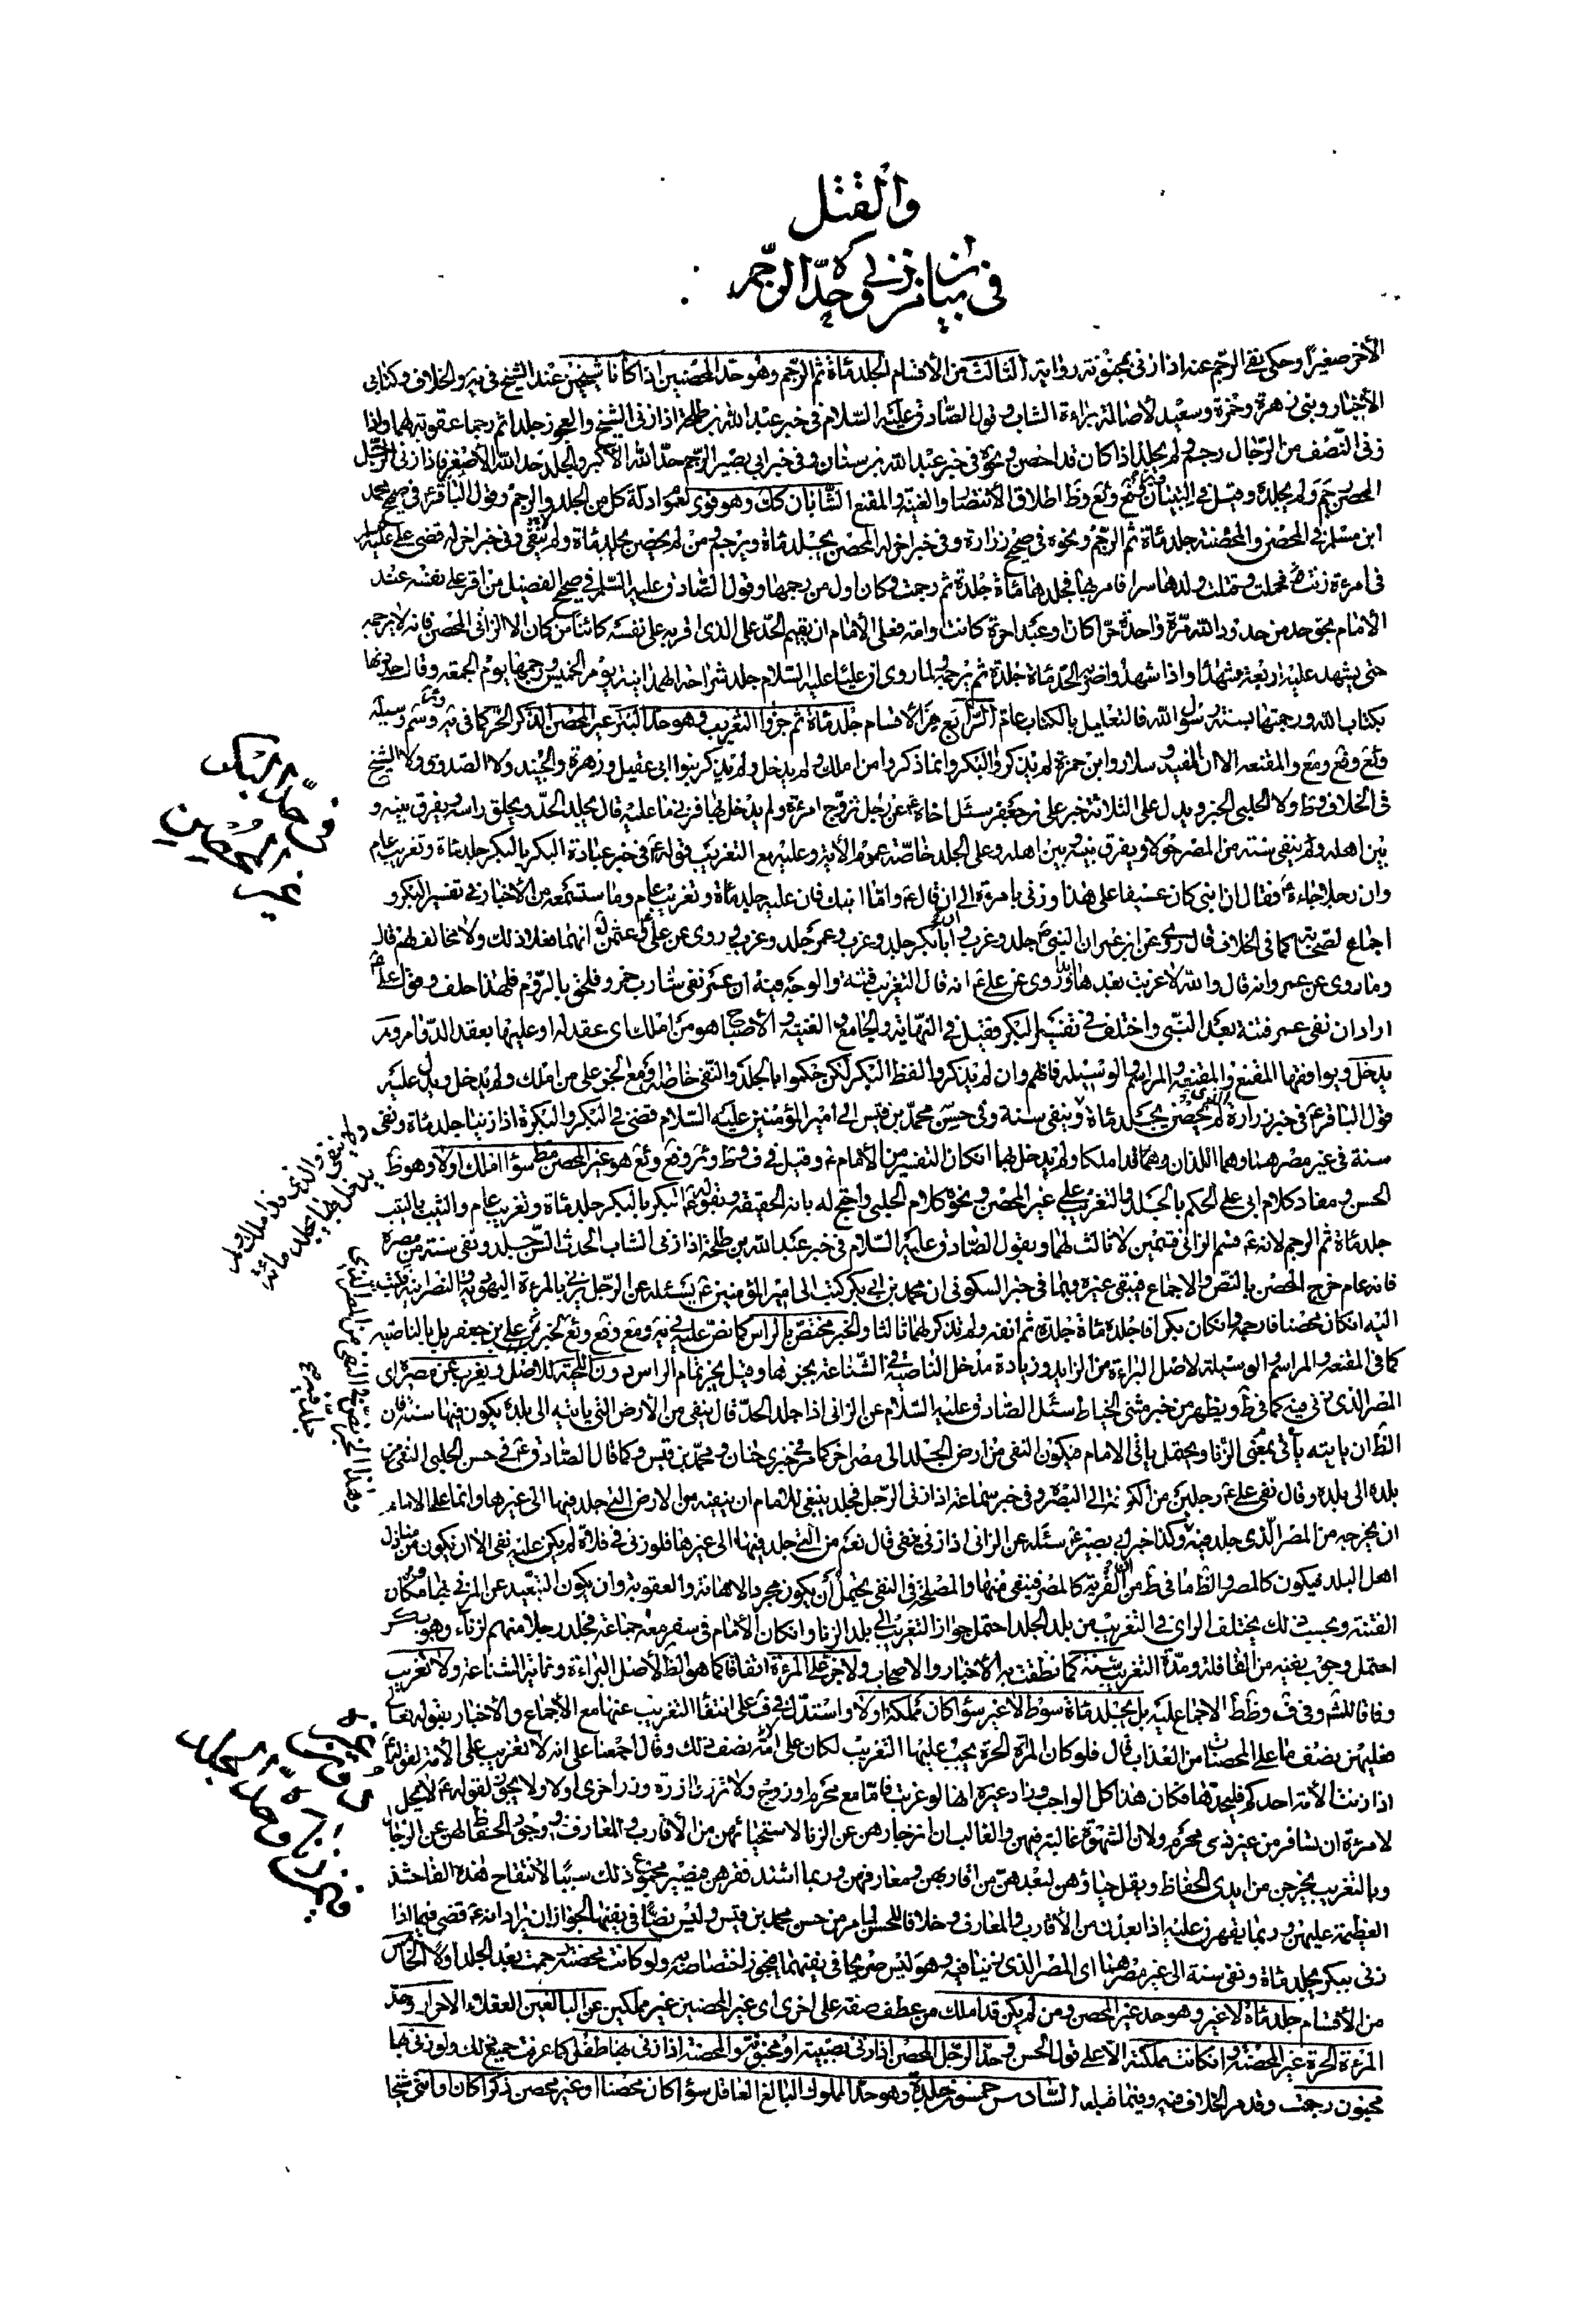 والقتل
في بيان من زنى وحدّ الرجم
الأخر صغيرًا وحكى نفى الرجم عنه اذا زنى بمجنونة رواية الثالث من الأقسام الجلد مائة ثم الرجم وهو حد المحصنين اذا كانا شيخين عند الشيخ في يه والخلاف وكتابى
الأخبار وبنى زهرة وحمزة وسعيد لأصالة براءة الشاب وقول الصادق عليه السلام في خبر عبد الله بن طلحة اذا زنى الشيخ والعجوز جلدا ثم رجما عقوبة لهما واذا
زنى النصف من الرجال رجم ولم يجلد اذا كان قد احصن ونحوه في خبر عبد الله بن سنان وفي خبر ابي بصير الرجم حد الله الأكبر والجلد حد الله الأصغر فاذا زنى الرجل
المحصن رجم ولم يجلد وقيل في اطلاق الأنتصار والغنية والمقنع الشابان كك وهو قوى لعموم ادلة كل من الجلد والرجم وقول الباقر ع في صحيح محمد
ابن مسلم في المحصن والمحصنة جلد مائة ثم الرجم ونحوه في صحيح زرارة وفي خبر اخر له المحصن يجلد مائة ويرجم ومن لم يحصن يجلد مائة ولا ينفى وفي خبر اخر له قضى على عليه السلام
في امرءة زنت فحملت وقتلت ولدها سرا فامر بها فجلدها مائة جلدة ثم رجمت وكان اول من رجمها وقول الصادق عليه السلم في صحيح الفضيل من اقر على نفسه عند
الأمام بحق حد من حدود الله مرة واحدة حرا كان او عبدا حرة كانت او امة فعلى الأمام ان يقيم الحد على الذى اقر به على نفسه كائنا من كان الا الزانى المحصن فانه لا يرجمه
حتى يشهد عليه اربعة شهداء واذا شهدوا ضربه الحد مائة جلدة ثم يرجمه ولما روى ان عليا عليه السلام جلد شراحة الهمدانية يوم الخميس ورجمها يوم الجمعة وقال جلدتها
بكتاب الله ورجمتها بسنة رسول الله فالتعليل بالكتاب عام الرابع من الأقسام جلد مائة ثم جزوا التغريب وهو حد البكر غير المحصن الذكر الحر كما في يه وسم وسيلة
وئع وقع ومع والمقنعه الا ان المفيد وسلار وابن حمزة لم يذكروا البكر وانما ذكروا من املك ولم يدخل ولم يذكر بنوا ابى عقيل وزهرة والجنيد ولا الصدوق ولا الشيخ
في الخلاف وط ولا الحلبى الجز ويدل على الثلاثة خبر على بن جعفر سئل اخاه ع عن رجل تزوج امرءة ولم يدخل بها فزنى ما عليه قال يجلد الحد ويحلق راسه ويفرق بينه و
بين اهله ولم ينفى سنة من المصر حولا ويفرق بينه وبين اهله وعلى الجلد خاصة عموم الأية وعليه مع التغريب قوله ع في خبر عبادة البكر بالبكر جلد مائة وتغريب عام
وان رجلا جاءه فقال ان ابنى كان عسيفا على هذا وزنى بامرءة الى ان قال ع واما ابنك فان عليه جلد مائة وتغريب عام وما ستسمعه من الأخبار في تفسير البكر و
اجماع الصحابة كما في الخلاف قال روى عن ابن عمر ان النبى جلد وغرب وان ابابكر جلد وغرب وعمر جلد وغرب وروى عن على ع وعثمن انهما فعلا ذلك ولا مخالف لهم قال
وما روى عن عمر وانه قال والله لا غربت بعدها وروى عن على ع انه قال التغريب فتنة والوجه فيه ان عمر نفى شارب خمر فلحق بالروم فلهذا حلف وقول على
اراد ان نفى عمر فتنة بعد النبى واختلف في تفسير البكر فقيل في النهاية والجامع والغنية والأصباح هو من املك اى عقد له او عليها بعقد الدوام ولم
يدخل ويوافقها المقنع والمقنعه والمراسم والوسيله فانهم وان لم يذكروا لفظ البكر لكن حكموا بالجلد والنفى خاصة ومع الجز على من املك ولم يدخل ويدل عليه
قول الباقر ع في خبر زرارة لم يحصن يجلد مائة وينفى سنة وفي حسن محمد بن قيس الى امير المؤمنين عليه السلام قضى في البكر والبكرة اذا زنيا جلد مائة ونفى
سنة في غير مصرهما وهما اللذان قد املكا ولم يدخل بهما ان كان التفسير من الأمام ع وقيل في ف وط وئر وقع وئع هو غير المحصن مط سواء املك اولا وهو ظ
الحسن ومفاد كلام ابى على الحكم بالجلد والتغريب على غير المحصن ونحوه كلام الحلبى واحتج له بانه الحقيقة وبقوله ع البكر بالبكر جلد مائة وتغريب عام والثيب بالثيب
جلد مائة ثم الرجم لانه ع قسم الزانى قسمين لا ثالث لهما وبقول الصادق عليه السلام في خبر عبد الله بن طلحة اذا زنى الشاب الحدث السن جلد ونفى سنة من مصره
فانه عام خرج المحصن بالنص والاجماع فيبقى غيره وبما في خبر السكونى ان محمد بن ابى بكر كتب الى امير المؤمنين ع يسئله عن الرجل يزنى بالمرءة اليهودية والنصرانية فكتب
اليه ان كان محصنا فارجمه وان كان بكرا فاجلده مائة جلدة ثم انفه ولم يذكر لهما ثالثا والخبر مختص بالراس كما نص عليه في يه ومع وقع وئع لخبر على بن جعفر بل بالناصية
كما في المقنعه والمراسم والوسيلة لاصل البراءة من الزايد وزيادة مدخل الناصية في الشناعة بجزها وقيل بجز تمام الراس دون اللحية للاصل ويغرب عن مصره اى
المصر الذى زنى فيه كما في ط ويظهر من خبر مثنى الخياط سئل الصادق عليه السلام عن الزانى اذا جلد الحد قال ينفى من الأرض التى ياتيه الى بلدة يكون فيها سنة فان
الظ ان ياتيه يأتى بمعنى الزنا ويحتمل ياتى الامام فيكون النفى من ارض الجلد الى مصر اخر كما في خبرى حنان ومحمد بن قيس وكما قال الصادق ع في حسن الحلبى النفى من
بلدة الى بلدة وقال نفى على ع رجلين من الكوفة الى البصرة وفي خبر سماعة اذا زنى الرجل فجلد ينبغى للامام ان ينفيه من الارض التى جلد فيها الى غيرها وانما على الامام
ان يخرجه من المصر الذى جلد فيه وكذا خبر ابى بصير سئله عن الزانى اذا زنى ينفى قال نعم من التى جلد فيها الى غيرها فلو زنى في فلاة لم يكن عليه نفى الا ان يكون من منازل
اهل البلد فيكون كالمصر والظ ما في ط من ان القرية كالمصر فينفى منها والمصلحة في النفى يحتمل ان يكون مجرد الاهانة والعقوبة وان يكون التبعيد عن المزنى بها ومكان
الفتنة وبحسب ذلك يختلف الراى في التغريب من بلد الجلد احتمل جواز التغريب الى بلد الزنا وان كان الأمام في سفر معه جماعة فجلد رجلا منهم لزناء وهو بكر
احتمل وجوب نفيه من القافلة ومدة التغريب سنة كما نطقت به الأخبار والاصحاب ولا جز على المرءة اتفاقا كما هو الظ لأصل البراءة ونهاية الشناعة ولا تغريب
وفاقا للشم وفي ف وظ ط الاجماع عليه بل يجلد مائة سوط لا غير سواء كان مملكة اولا واستدل في ف على انتفاء التغريب عنها مع الأجماع والأخبار بقوله تعالى
فعليهن نصف ما على المحصنات من العذاب قال فلو كان المرءة الحرة يجب عليها التغريب لكان على الأمة نصف ذلك وقال اجمعنا على انه لا تغريب على الأمة لقوله ع
اذا زنت الأمة احدكم فليجلدها فكان هذا كل الواجب وزاد غيره انها لو غربت فاما مع محرم او زوج ولا تزر وازرة وزر اخرى اولا ولا يجوز لقوله ع لا يحل
لامرءة ان تسافر من غير ذى محرم ولان الشهوة غالبة فيهن والغالب ان انزجارهن عن الزنا لاستحيائهن من الأقارب والمعارف ووجوب الحفاظ لهن عن الرجال
وبالتغريب يخرجن من ايدى الحفاظ ويقل حياؤهن لبعدهن من اقاربهن ومعارفهن وربما اشتد فقرهن فيصير مجموع ذلك سببا لأنفتاح هذه الفاحشة
العظيمة عليهن وربما يقهرن عليه اذا بعدن من الأقارب والمعارف وخلافا للحسن لما مر من حسن محمد بن قيس وليس نصا في نفيها لجواز ان يراد انه ع قضى فيما اذا
زنى ببكر بجلد مائة ونفى سنة الى غير مصرهما اى المصر الذى زنيا فيه وهو ليس صريحا في نفيهما فيجوز اختصاصه به ولو كانت محصنة رجمت بعد الجلد اولا الخامس
من الأقسام جلد مائة لا غير وهو حد غير المحصن ومن لم يكن قد املك من عطف صفة على اخرى اى غير المحصنين غير مملكين عن البالغين العقلاء الاحرار وحد
المرءة الحرة غير المحصنة وان كانت مملكة الا على قول الحسن وحد الرجل المحصن اذا زنى بصبية او مجنونة والمحصنة اذا زنى بها طفل كما عرفت جميع ذلك ولو زنى بها
مجنون رجمت وقد مر الخلاف فيه وفيما قبله السادس خمسون جلدة وهو حد المملوك البالغ العاقل سواء كان محصنا او غير محصن ذكرا كان او انثى شيخا
في حدّ البكر
غير المحصن